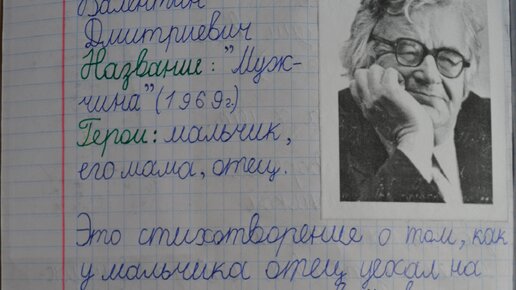 Валентин
Дмитриевич
Название: "Муж-
чина" (1969г.)
Герои: мальчик,
его мама, отец.
Это стихотворение о том, как
у мальчика отец уехал на